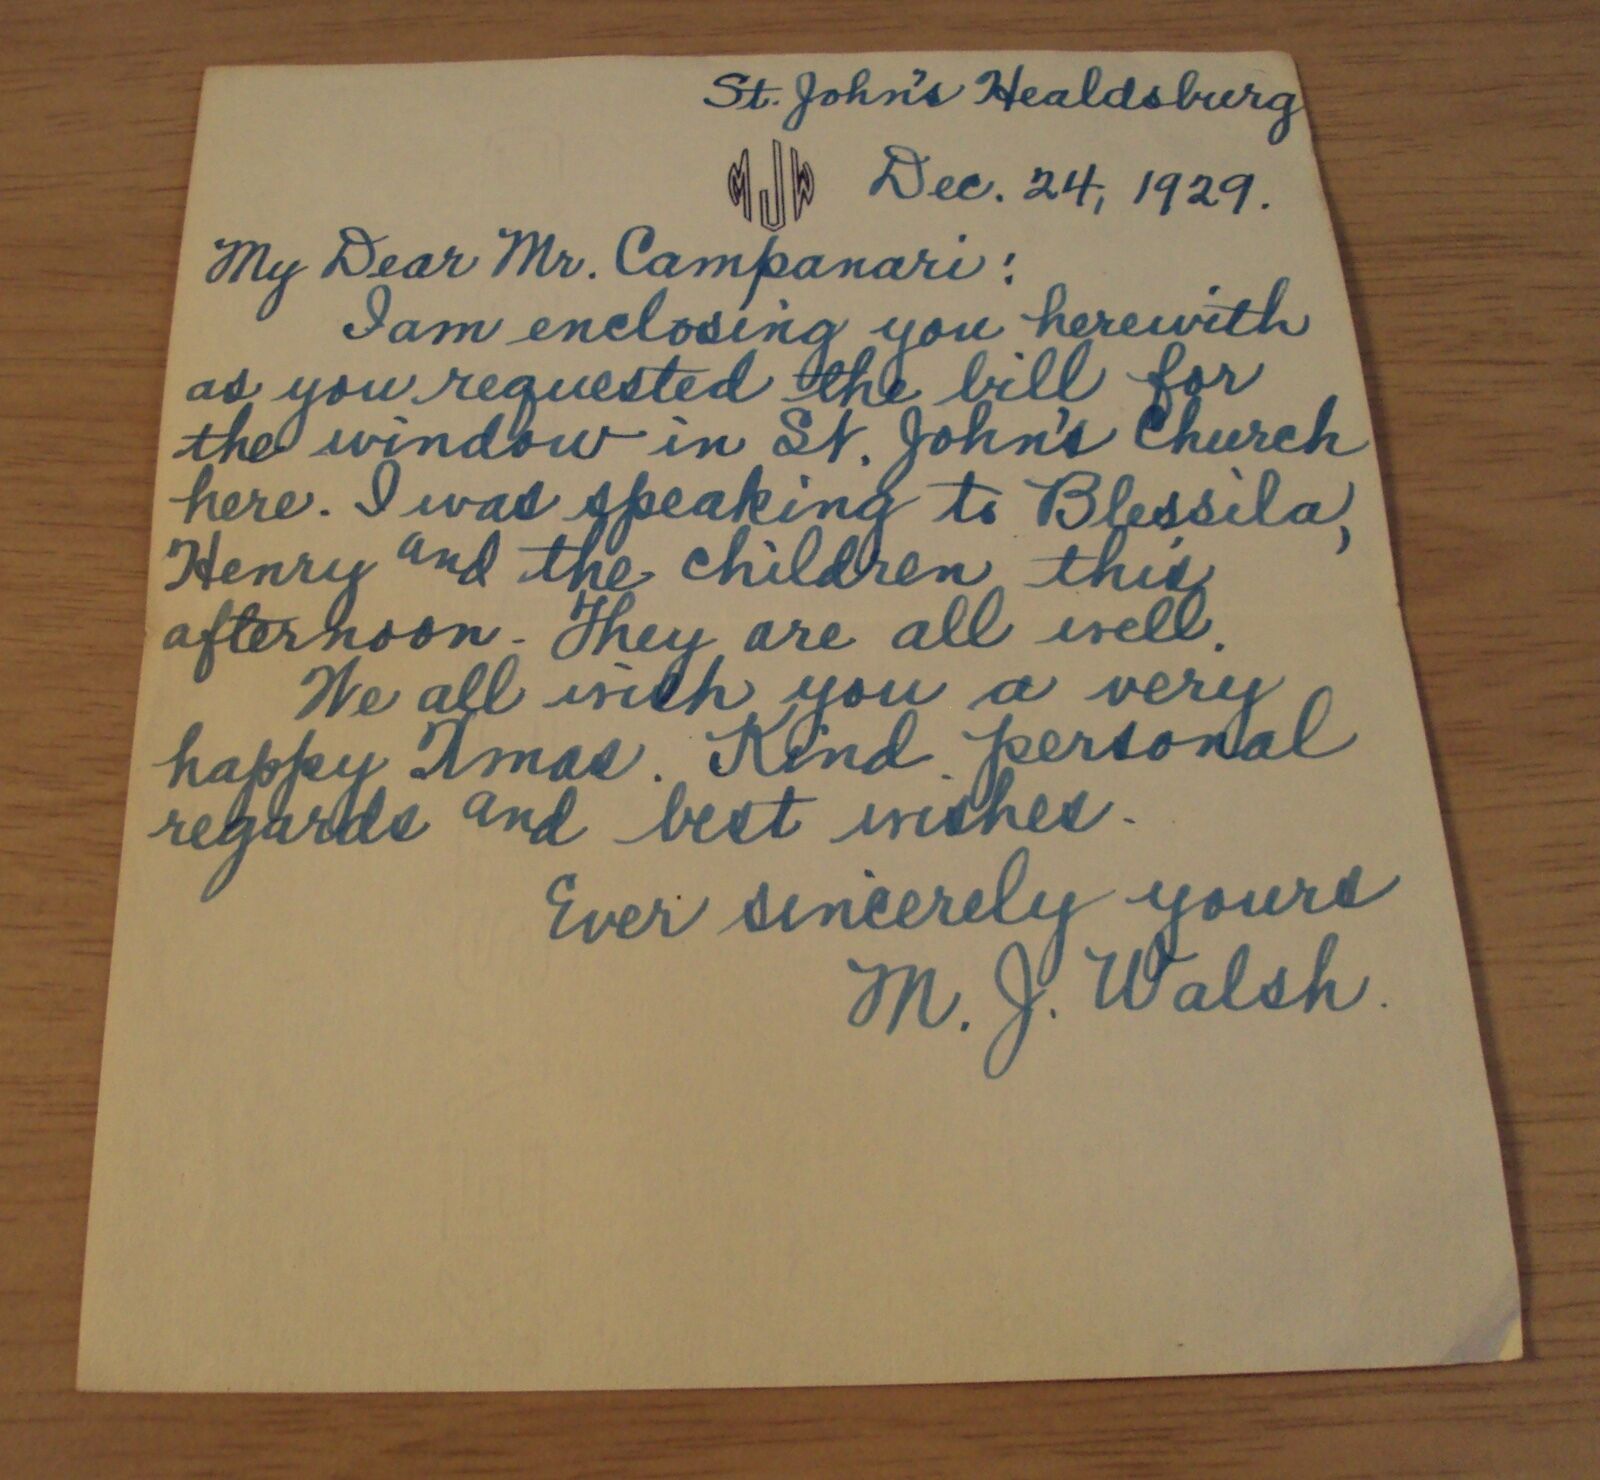 St. John's Healdsburg
MJW
Dec. 24, 1929.
My Dear Mr. Campanari:
I am enclosing you herewith
as you requested the bill for
the window in St. John's Church
here. I was speaking to Blessila,
Henry and the children this
afternoon. They are all well.
We all wish you a very
happy Xmas. Kind personal
regards and best wishes.
Ever sincerely yours
M. J. Walsh.